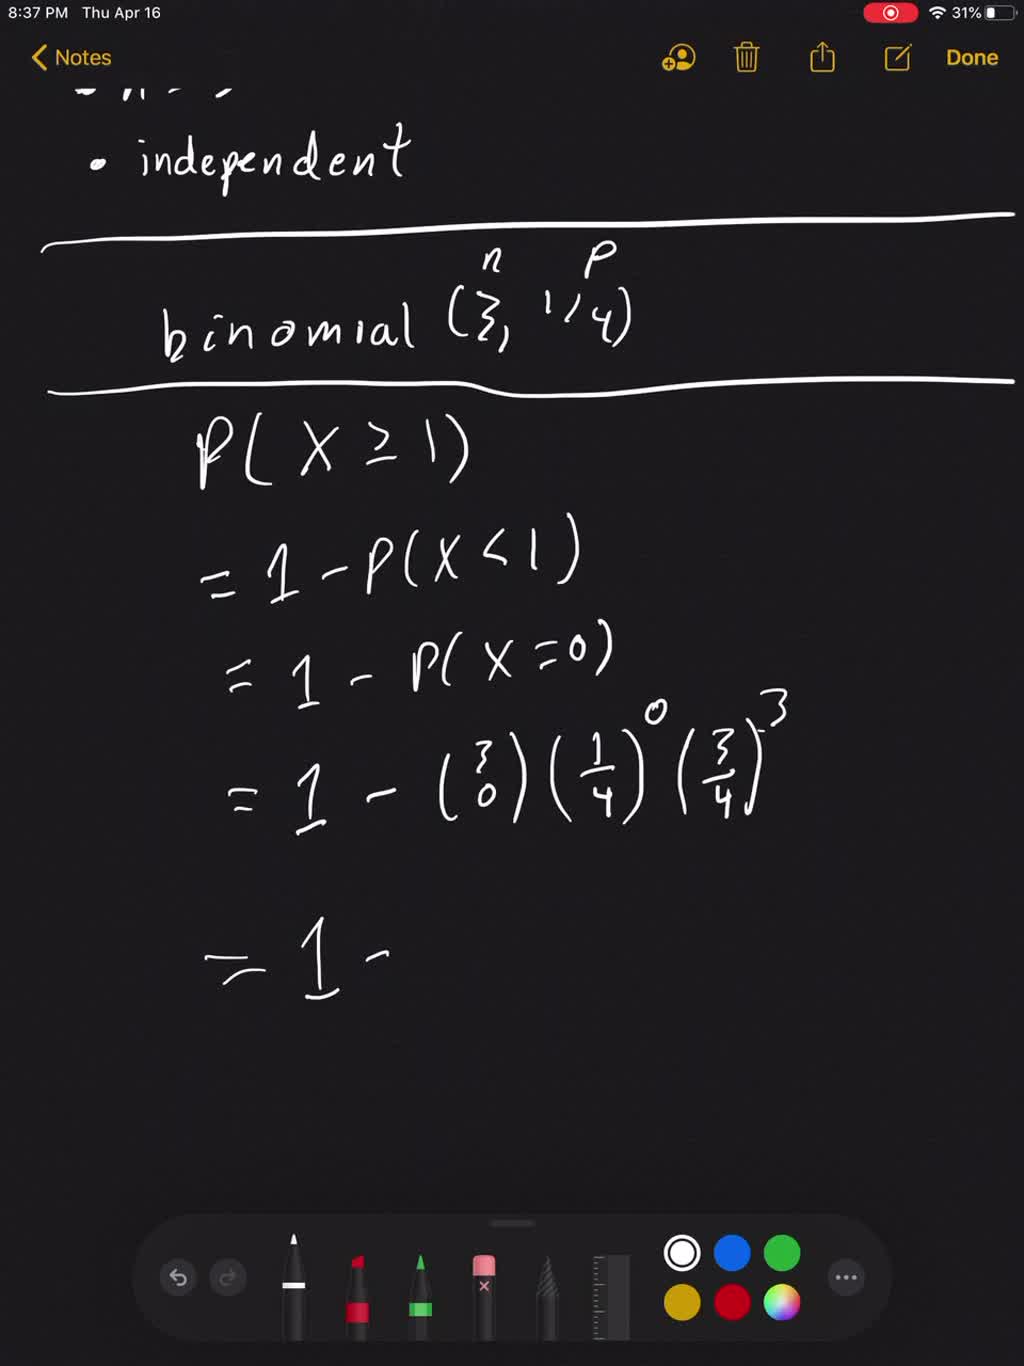 8:37 PM Thu Apr 16 31%
Notes Done
• independent
n p
binomial (3, 1/4)
P(X ≥ 1)
= 1 - P(X < 1)
= 1 - P(X = 0)
= 1 - (3 0) (1/4)^0 (3/4)^3
= 1 -